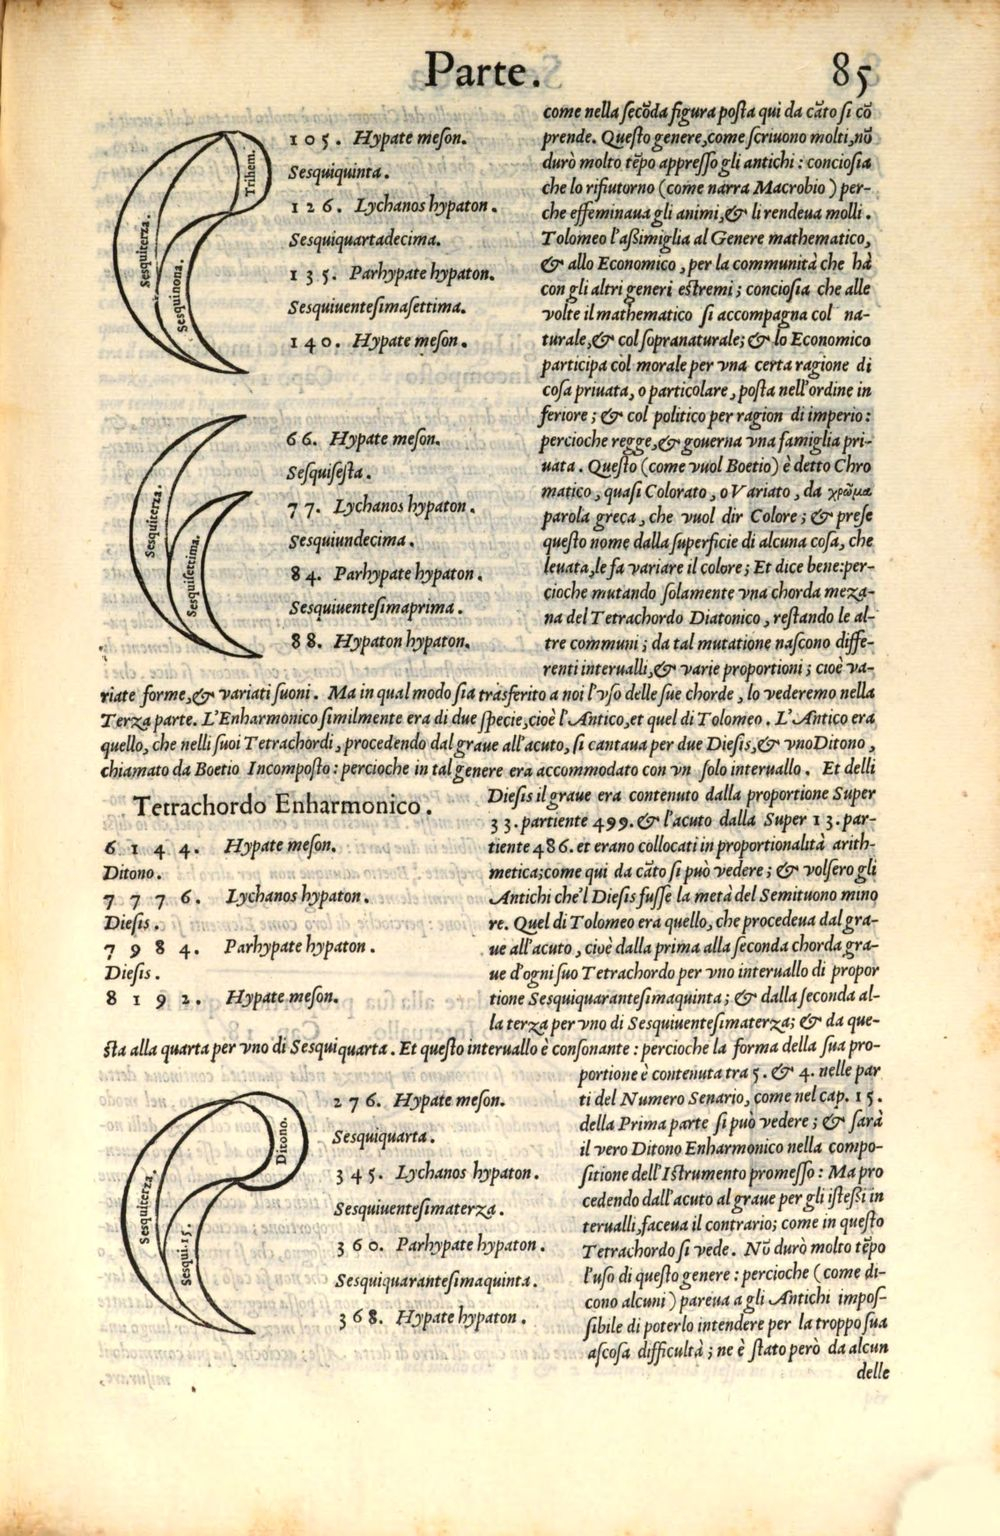 Parte. 85
105. Hypate meſon.
Sesquiquinta.
126. Lychanos hypaton.
Sesquiquartadecima.
135. Parhypate hypaton.
Sesquiuentesimaſettima.
140. Hypate meſon.
Trihem.
Sesquiterza.
Sesquinona.
66. Hypate meſon.
Seſquiſeſta.
77. Lychanos hypaton.
Sesquiundecima.
84. Parhypate hypaton.
Sesquiuenteſimaprima.
88. Hypaton hypaton.
Sesquiterza.
Sesquiſettima.
come nella ſecōda figura poſta qui da cāto ſi cō
prende. Queſto genere, come ſcriuono molti, nō
durò molto tēpo appreſſo gli antichi: concioſia
che lo rifiutorno (come narra Macrobio) per-
che effeminaua gli animi, & li rendeua molli.
Tolomeo l'aßimiglia al Genere mathematico,
& allo Economico, per la communità che hà
con gli altri generi eſtremi; concioſia che alle
volte il mathematico ſi accompagna col na-
turale, & col ſopranaturale; & lo Economico
participa col morale per vna certa ragione di
coſa priuata, o particolare, poſta nell'ordine in
feriore; & col politico per ragion di imperio:
percioche regge, & gouerna vna famiglia pri-
uata. Queſto (come vuol Boetio) è detto Chro
matico, quaſi Colorato, o Variato, da χρῶμα
parola greca, che vuol dir Colore; & preſe
queſto nome dalla ſuperficie di alcuna coſa, che
leuata, le fa variare il colore; Et dice bene: per-
cioche mutando ſolamente vna chorda meza-
na del Tetrachordo Diatonico, reſtando le al-
tre communi; da tal mutatione naſcono diffe-
renti interualli, & varie proportioni; cioè va-
riate forme, & variati ſuoni. Ma in qual modo ſia trāsferito a noi l'vſo delle ſue chorde, lo vederemo nella
Terza parte. L'Enharmonico ſimilmente era di due ſpecie, cioè l'Antico, et quel di Tolomeo. L'Antico era
quello, che nelli ſuoi Tetrachordi, procedendo dal graue all'acuto, ſi cantaua per due Dieſis, & vno Ditono,
chiamato da Boetio Incompoſto: percioche in tal genere era accommodato con vn ſolo interuallo. Et delli
Tetrachordo Enharmonico.
6144. Hypate meſon.
Ditono.
7776. Lychanos hypaton.
Dieſis.
7984. Parhypate hypaton.
Dieſis.
8192. Hypate meſon.
Dieſis il graue era contenuto dalla proportione Super
33. partiente 499. & l'acuto dalla Super 13. par-
tiente 486. et erano collocati in proportionalità arith-
metica; come qui da cāto ſi può vedere; & volſero gli
Antichi che'l Dieſis fuſſe la metà del Semituono mino
re. Quel di Tolomeo era quello, che procedeua dal gra-
ue all'acuto, cioè dalla prima alla ſeconda chorda gra-
ue d'ogni ſuo Tetrachordo per vno interuallo di propor
tione Sesquiquaranteſimaquinta; & dalla ſeconda al-
la terza per vno di Sesquiuenteſimaterza; & da que-
ſta alla quarta per vno di Sesquiquarta. Et queſto interuallo è conſonante: percioche la forma della ſua pro-
portione è contenuta tra 5. & 4. nelle par
ti del Numero Senario, come nel cap. 15.
della Prima parte ſi può vedere; & ſarà
il vero Ditono Enharmonico nella compo-
ſitione dell'Iſtrumento promeſſo: Ma pro
cedendo dall'acuto al graue per gli iſteßi in
terualli, faceua il contrario; come in queſto
Tetrachordo ſi vede. Nō durò molto tēpo
l'uſo di queſto genere: percioche (come di-
cono alcuni) pareua a gli Antichi impoſ-
ſibile di poterlo intendere per la troppo ſua
aſcoſa difficultà; ne è ſtato però da alcun
delle
276. Hypate meſon.
Sesquiquarta.
345. Lychanos hypaton.
Sesquiuenteſimaterza.
360. Parhypate hypaton.
Sesquiquaranteſimaquinta.
368. Hypate hypaton.
Ditono.
Sesquiterza.
Sesqui.15.